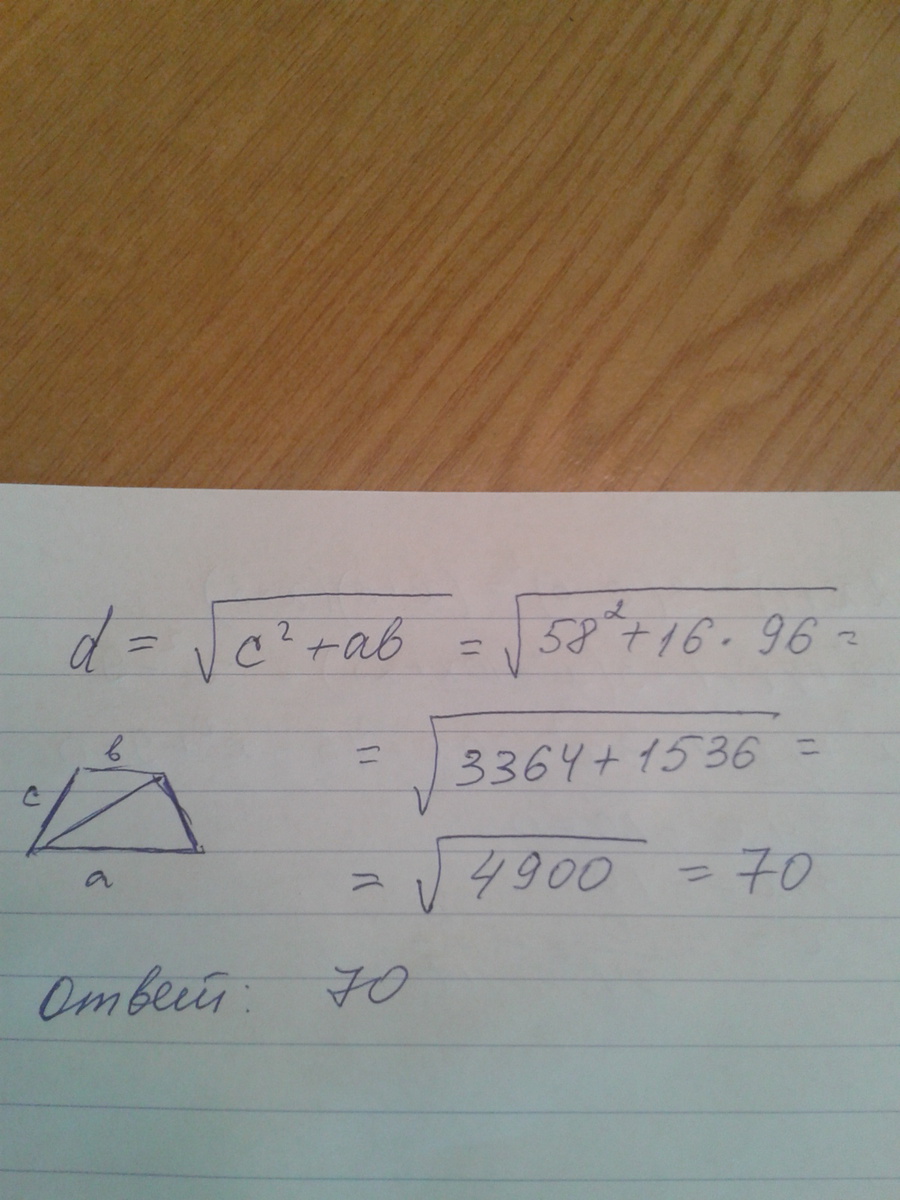 d = √(c² + ab) = √(58² + 16 · 96) =
= √(3364 + 1536) =
в
c
a
= √4900 = 70
Ответ: 70